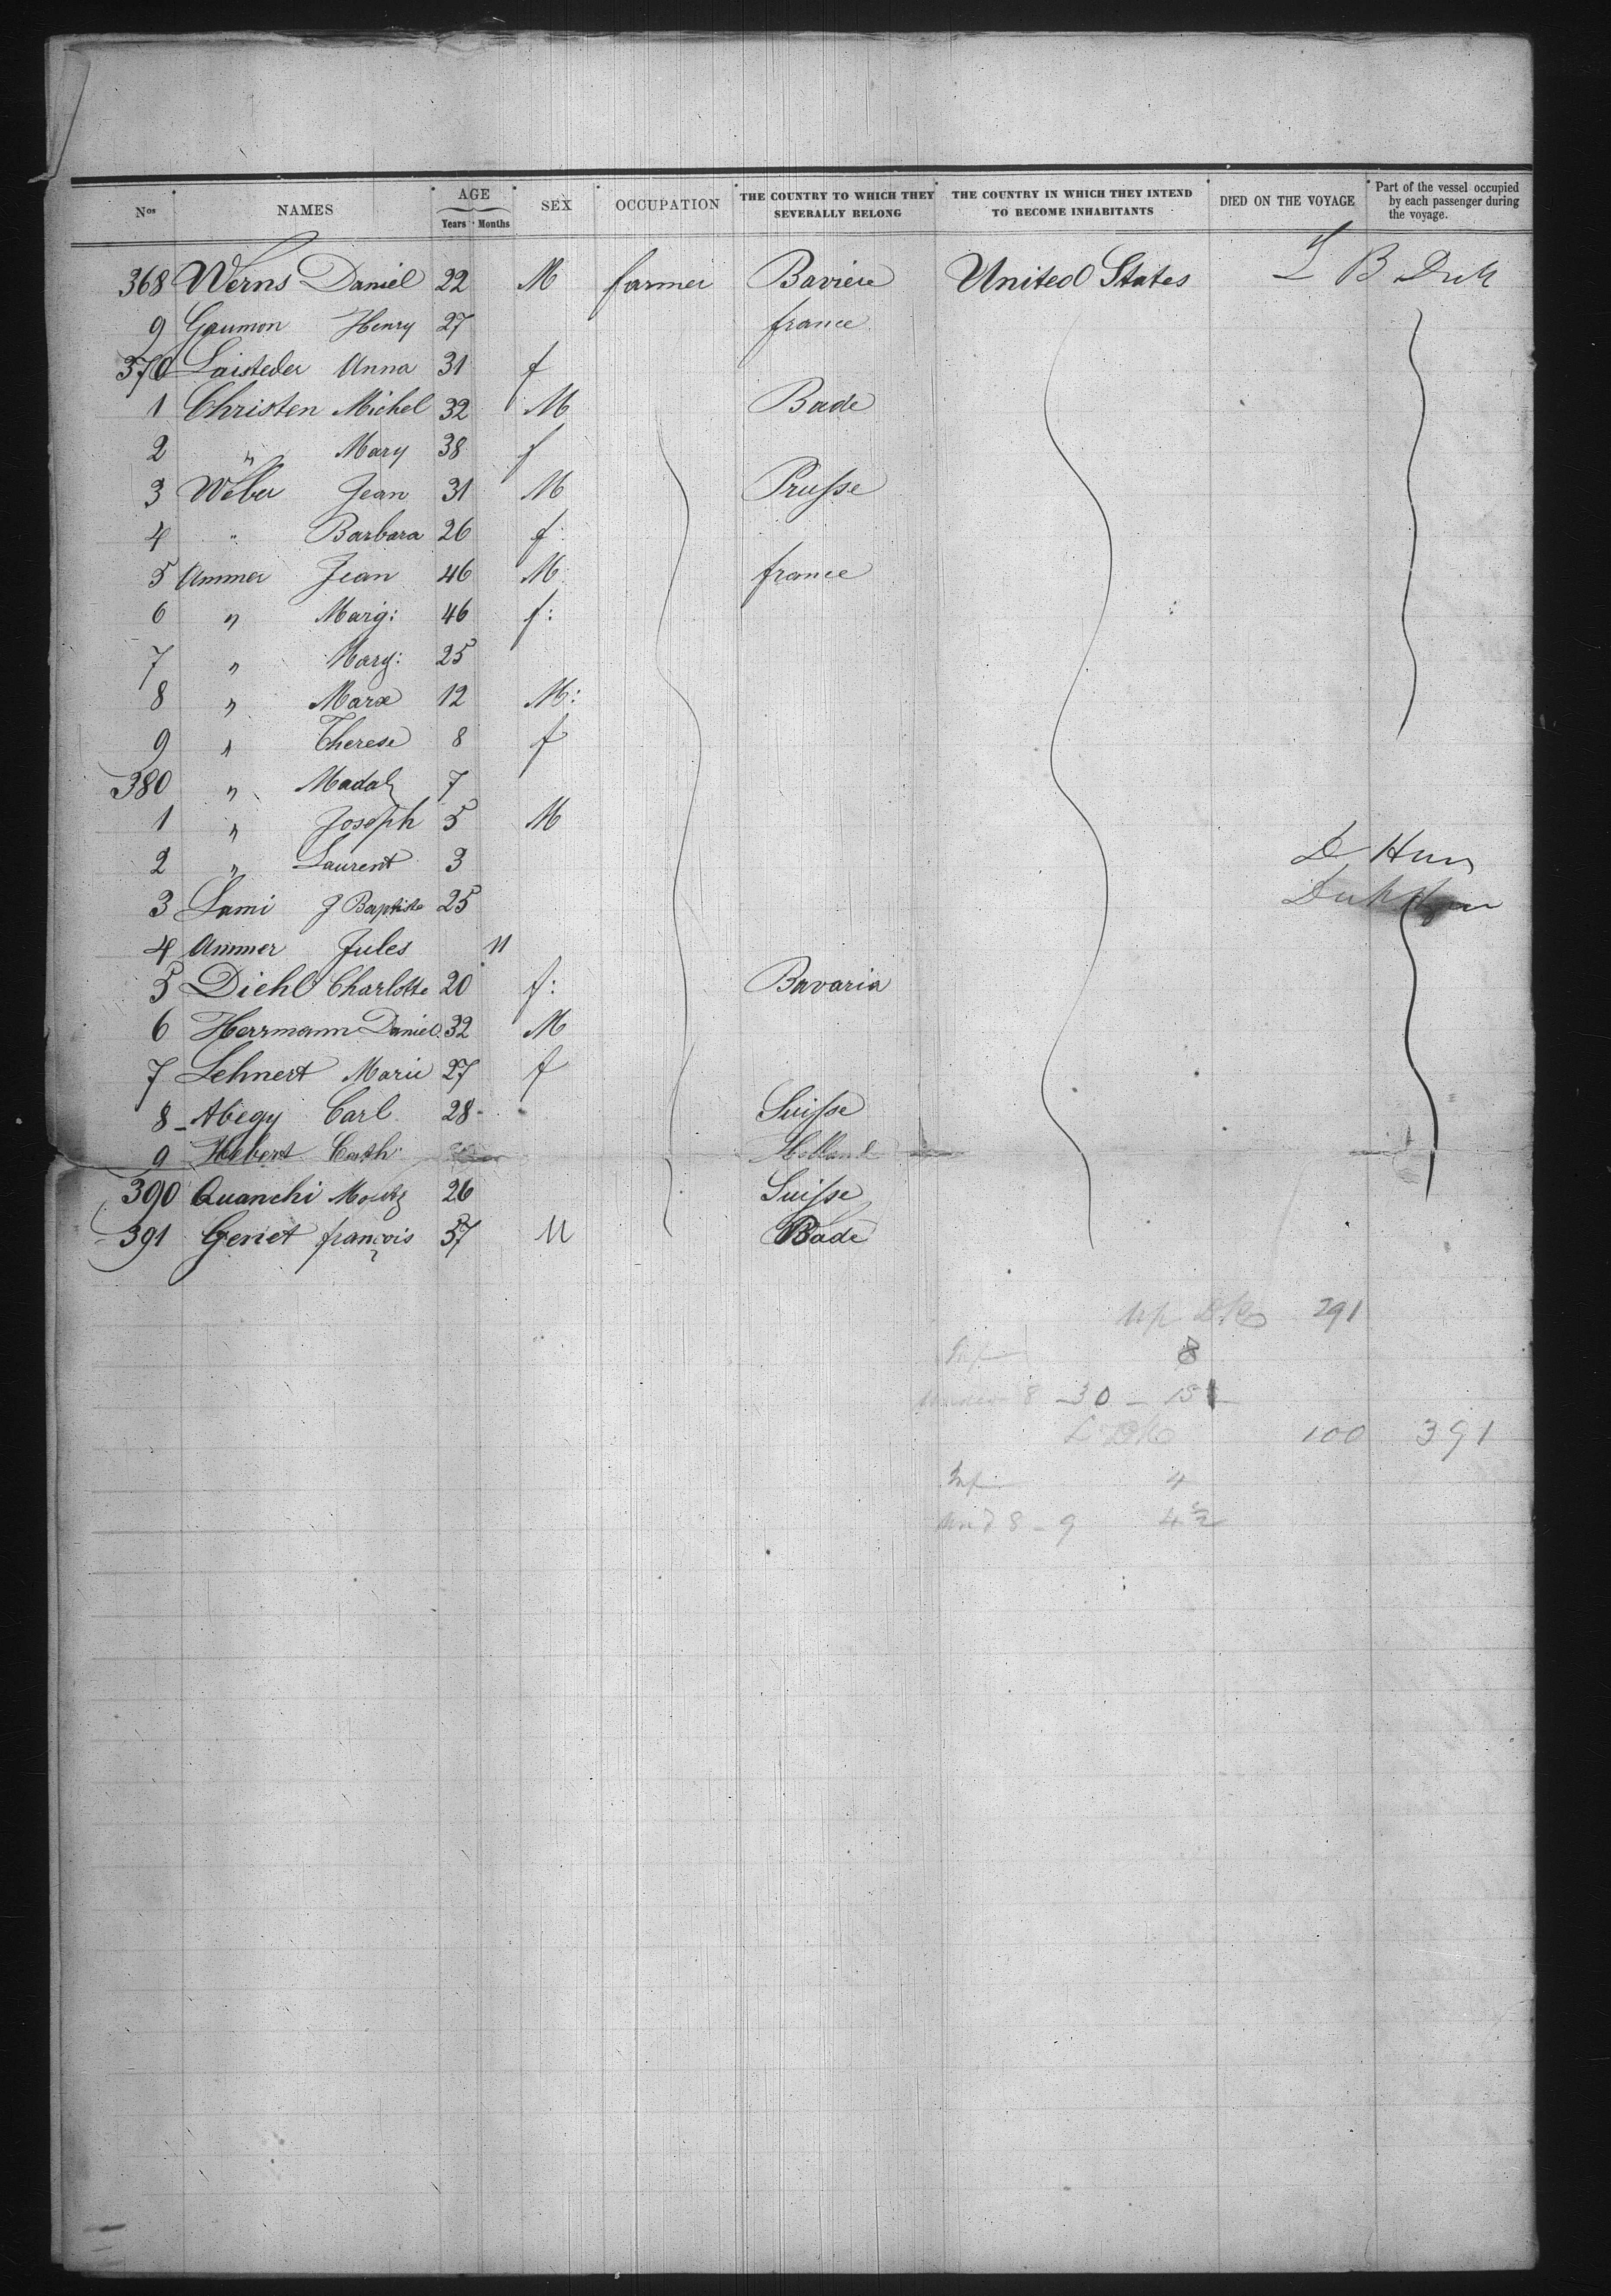 Nos NAMES AGE Years Months SEX OCCUPATION THE COUNTRY TO WHICH THEY SEVERALLY BELONG THE COUNTRY IN WHICH THEY INTEND TO BECOME INHABITANTS DIED ON THE VOYAGE Part of the vessel occupied by each passenger during the voyage.
368 Werns Daniel 22 M farmer Baviere United States
9 Gaumon Henry 27 france
370 Laisteder Anna 31 f
1 Christen Michel 32 M Bade
2 " Mary 38 f
3 Weber Jean 31 M Prusse
4 " Barbara 26 f
5 Ammer Jean 46 M france
6 " Marg: 46 f:
7 " Marg: 25
8 " Marx 12 M:
9 " Therese 8 f
380 " Madal 7
1 " Joseph 5 M
2 " Laurent 3
3 Lami J Baptiste 25
4 Ammer Jules 11
5 Diehl Charlotte 20 f: Bavaria
6 Herrmann Daniel 32 M
7 Lehnert Marie 27 f
8 Abegy Carl 28 Suisse
9 Hebert Cath: Holland
390 Quanchi Moritz 26 Suisse
391 Genet françois 37 M Bade
291
8
8 - 30 - 15
100 391
4
8 - 9 4 1/2